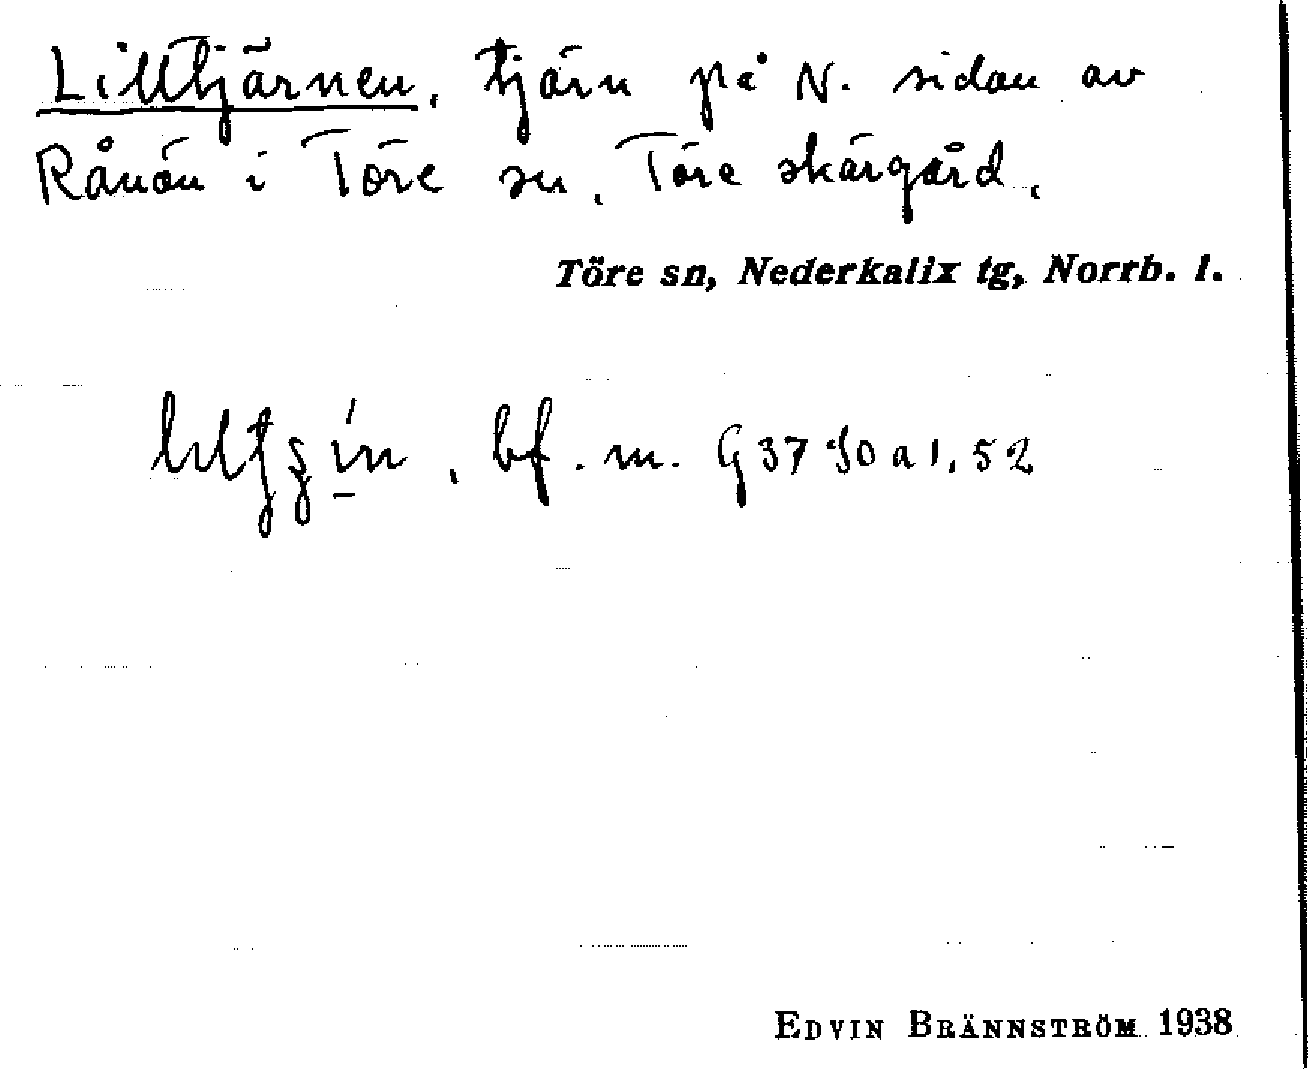 Lilltjärnen, tjärn på N. sidan av
Rånön i Töre sn, Töre skärgård.
Töre sn, Nederkalix tg, Norrb. l.
bf. m. G 37 So a 1, 52
EDVIN BRÄNNSTRÖM 1938